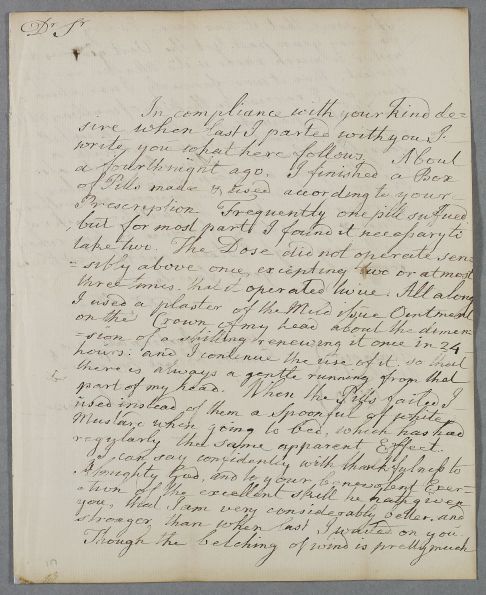 Dr Sr
In compliance with your kind de=
sire when last I parted with you I
write you what here follows. About
a fourthnight ago. I finished a Box
of Pills made & used according to your
Prescription Frequently one pill sufficed
but for most part I found it necessary to
take two. The Dose did not operate sen=
=sibly above once, excepting two or at most
three times that it operated twice. All along
I used a plaster of the Ointment
on the Crown of my head about the dimen=
=sion of a shilling renewing it once in 24
hours: and I continue the use of it. so that
there is always a gentle running from that
part of my head. When the Pills failed I
used instead of them a spoonful of white
Mustard when going to bed, which has had
regularly the same apparent Effect.
I can say confidently with thankfulness to
Almighty God, and to your benevolent Exer=
=tion of the excellent skill he hath given
you, that I am very considerably better and
stronger, than when last I waited on you.
Though the belching of wind is pretty much